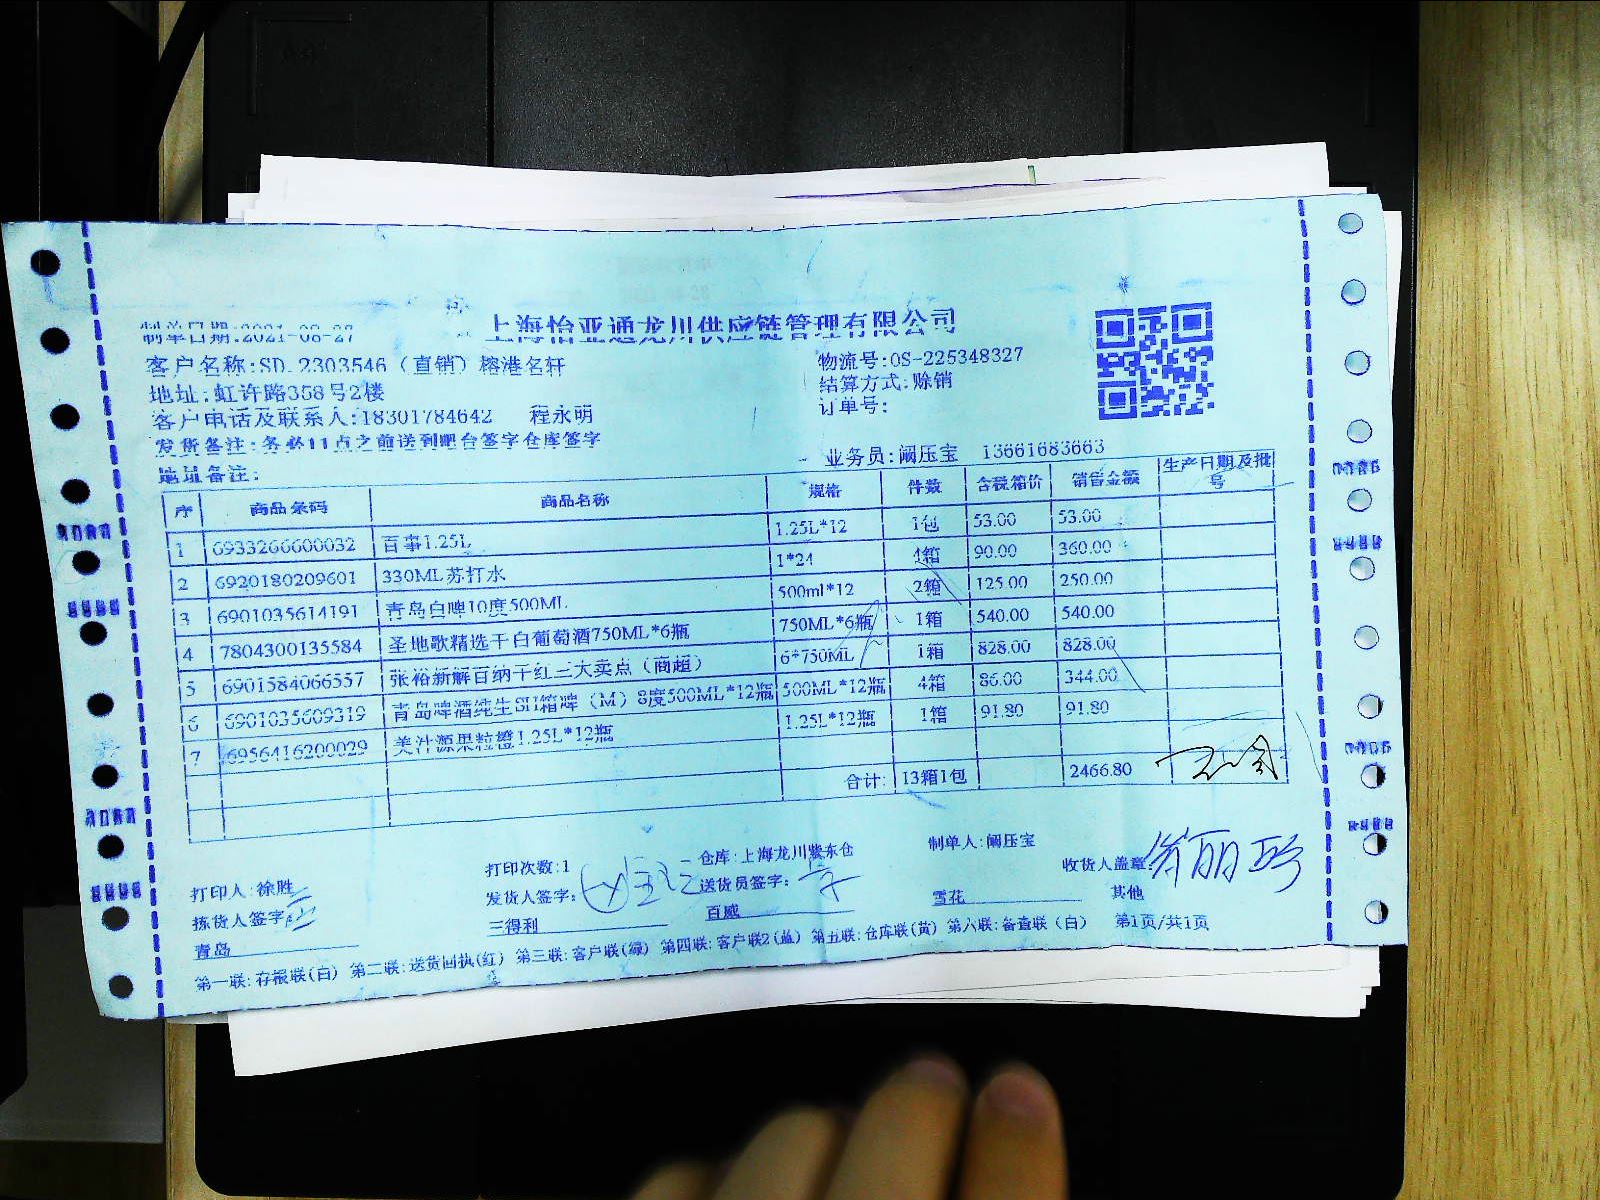 上海怡亚通龙川供应链管理有限公司
制单日期:2021-08-27
客户名称:SD.2303546（直销）榕港名轩
物流号:OS-225348327
地址:虹许路358号2楼
结算方式:赊销
客户电话及联系人:18301784642 程永明
订单号:
发货备注:务必11点之前送到吧台签字仓库签字
业务员:阚压宝 13661683663
地址备注:
序 商品条码 商品名称 规格 件数 含税箱价 销售金额 生产日期及批号
1 6933266600032 百事1.25L 1.25L*12 1包 53.00 53.00
2 6920180209601 330ML苏打水 1*24 4箱 90.00 360.00
3 6901035614191 青岛白啤10度500ML 500ml*12 2箱 125.00 250.00
4 7804300135584 圣地歌精选干白葡萄酒750ML*6瓶 750ML*6瓶 1箱 540.00 540.00
5 6901584066557 张裕新解百纳干红三大卖点（商超） 6*750ML 1箱 828.00 828.00
6 6901035609319 青岛啤酒纯生SH箱啤（M）8度500ML*12瓶 500ML*12瓶 4箱 86.00 344.00
7 6956416200029 美汁源果粒橙1.25L*12瓶 1.25L*12瓶 1箱 91.80 91.80
合计: 13箱1包 2466.80
打印人:徐胜 打印次数:1 仓库:上海龙川紫东仓 制单人:阚压宝 收货人盖章:
拣货人签字: 发货人签字: 送货员签字: 其他
青岛 三得利 百威 雪花
第一联:存根联(白) 第二联:送货回执(红) 第三联:客户联(绿) 第四联:客户联2(蓝) 第五联:仓库联(黄) 第六联:备查联（白） 第1页/共1页